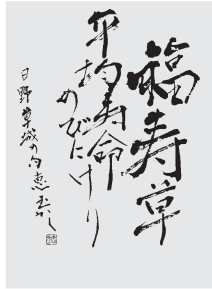 福寿草
平均寿命
のびにけり
日野草城の句恵玉かし